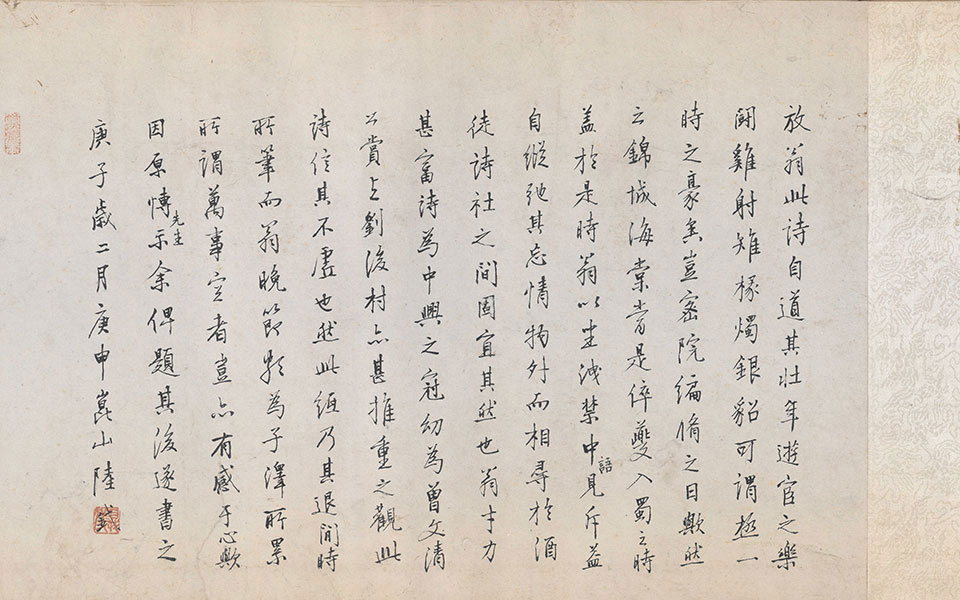 放翁此詩自道其壯年遊宦之樂
鬪雞射雉椽燭銀貂可謂極一
時之豪矣豈密院編脩之日歟然
云錦城海棠當是倅夔入蜀之時
盖於是時翁以坐洩禁中語見斥益
自縱弛其忘情物外而相尋於酒
徒詩社之間固宜其然也翁才力
甚富詩為中興之冠幼為曾文清
公賞與劉後村亦甚推重之觀此
詩信其不虛也然此紙乃其退閒時
所筆而翁晚節頗為子澤所累
所謂萬事定者豈亦有感于心歟
因原博先生示余俾題其後遂書之
庚子歲二月庚申崑山陸釴